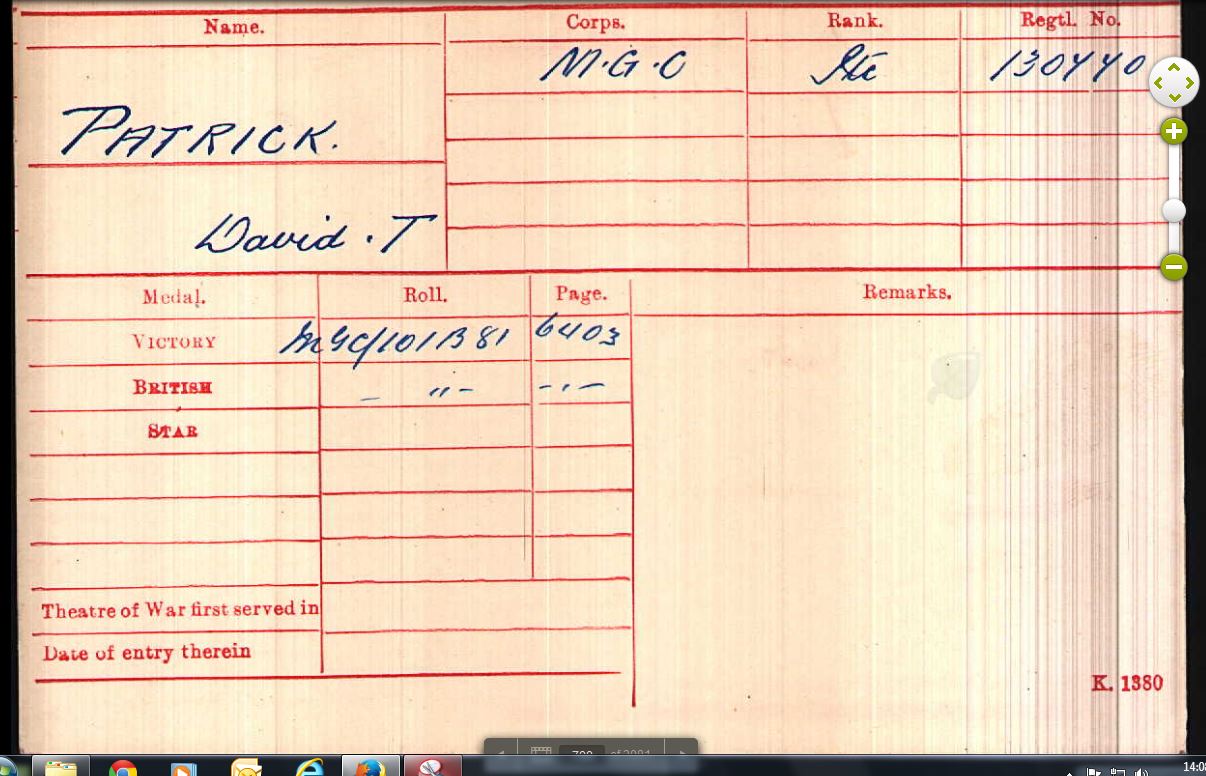 Name. Corps. Rank. Regtl. No.
M.G.C Pte 130440
PATRICK.
David . T
Medal. Roll. Page. Remarks.
VICTORY MGC/101B81 6403
BRITISH – " – – " –
STAR
Theatre of War first served in
Date of entry therein
K. 1380
of 2981
14:08